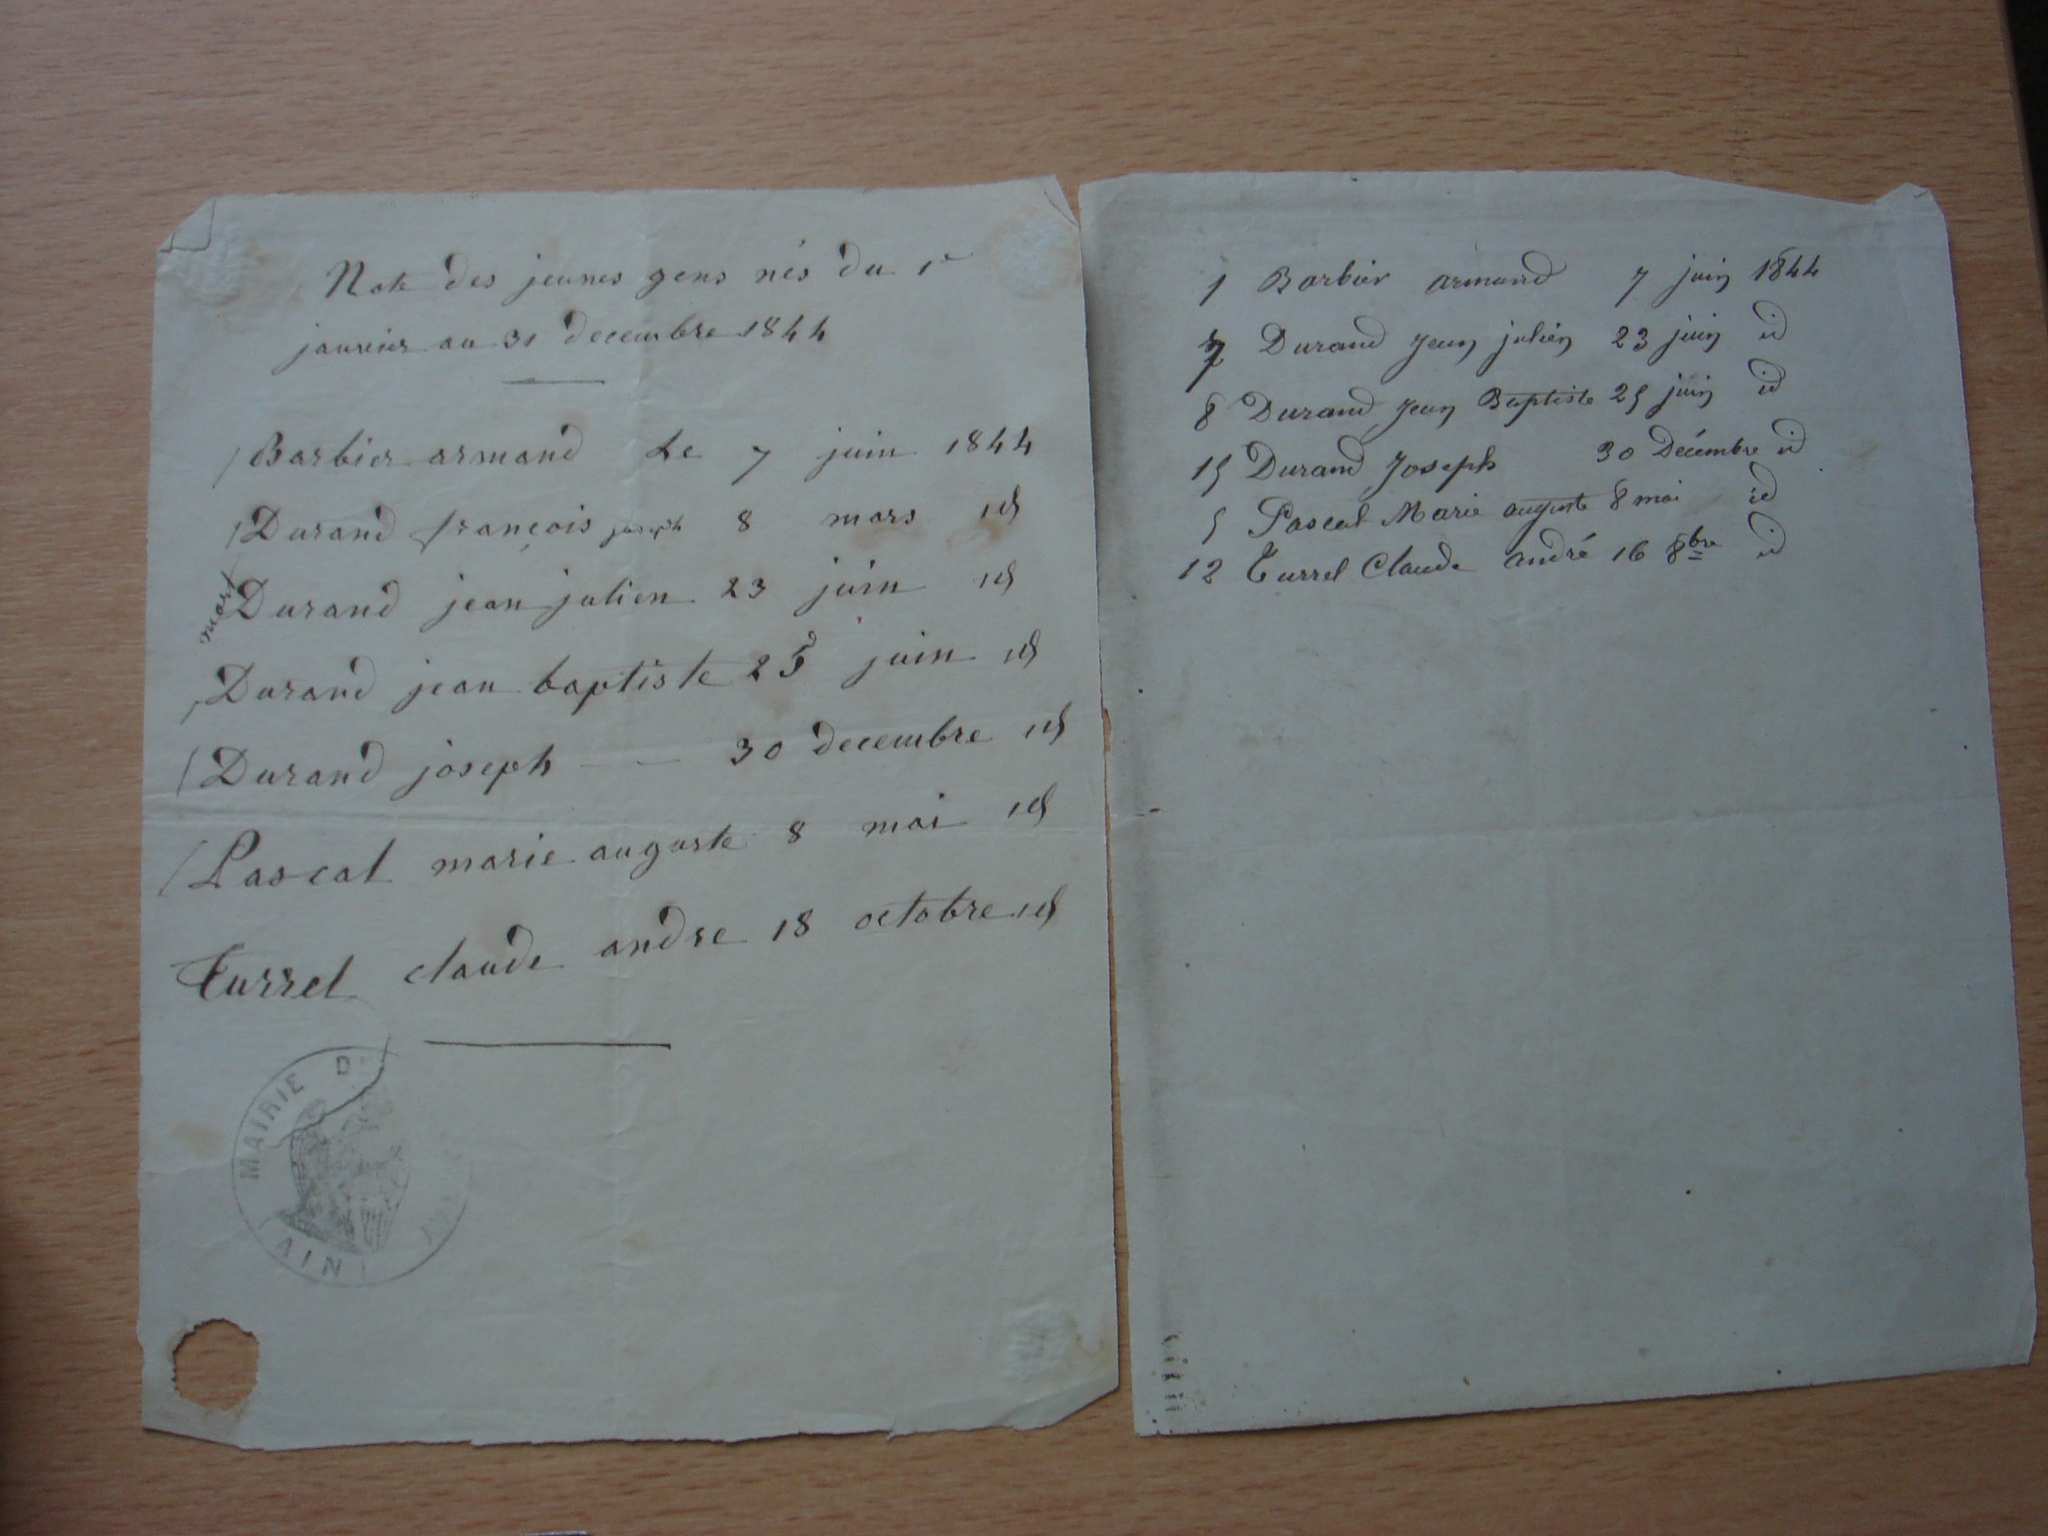 Note des jeunes gens nés du 1r
janvier au 31 decembre 1844
Barbier armand Le 7 juin 1844
Durand françois joseph 8 mars id
mort Durand jean julien 23 juin id
Durand jean baptiste 25 juin id
Durand joseph 30 decembre id
Pascal marie auguste 8 mai id
Turrel claude andre 18 octobre id
MAIRIE D'
AIN
1 Barbier armand 7 juin 1844
7 Durand Jean julien 23 juin id
8 Durand Jean Baptiste 25 juin id
15 Durand Joseph 30 Décémbre id
5 Pascal Marie auguste 8 mai id
12 Turrel Claude andré 16 8bre id